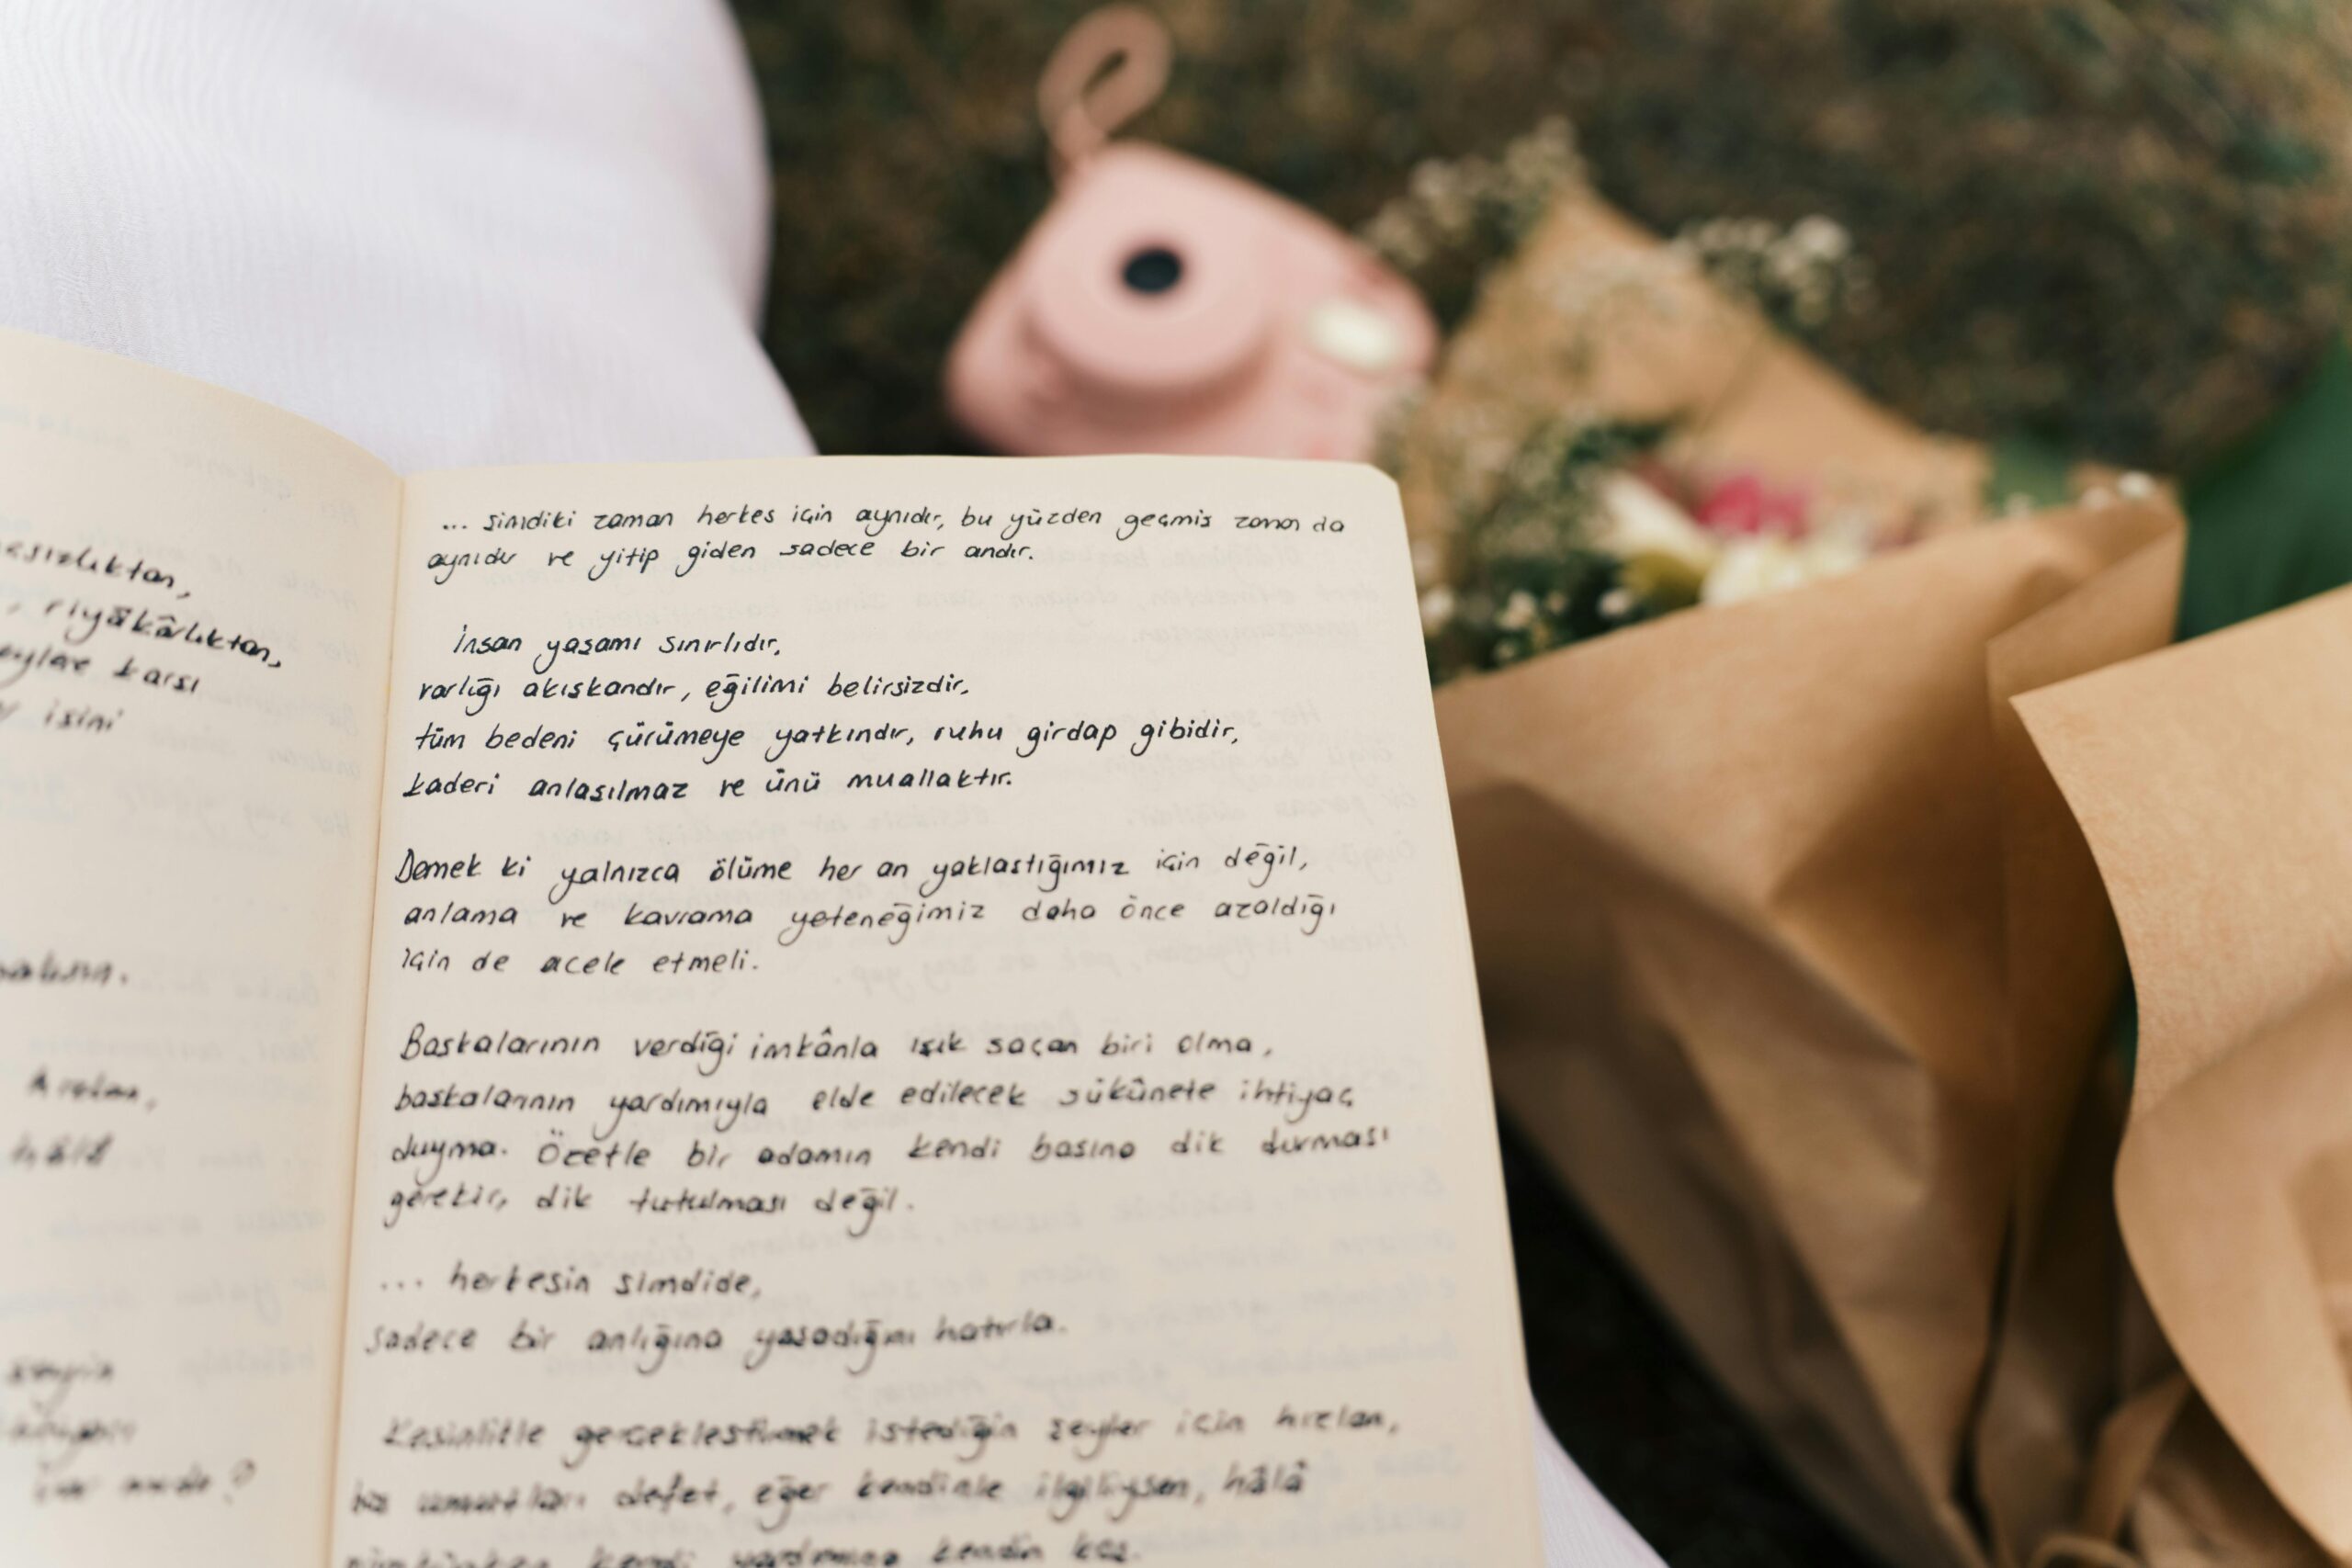 esızlıktan,
, riyâkârlıktan,
eylere karsı
isini
Aratma,
hâlâ
... simdiki zaman herkes için aynıdır, bu yüzden geçmis zaman da
aynıdır ve yitip giden sadece bir andır.
İnsan yaşamı sınırlıdır,
varlığı akıskandır, eğilimi belirsizdir,
tüm bedeni çürümeye yatkındır, ruhu girdap gibidir,
kaderi anlasılmaz ve ünü muallaktır.
Demek ki yalnızca ölüme her an yaklastığımız için değil,
anlama ve kavrama yeteneğimiz daha önce azaldığı
için de acele etmeli.
Baskalarının verdiği imkânla ışık saçan biri olma,
baskalarının yardımıyla elde edilecek sükûnete ihtiyaç
duyma. Özetle bir adamın kendi basına dik durması
gerekir, dik tutulması değil.
... herkesin simdide,
sadece bir anlığına yasadığını hatırla.
Kesinlikle gerçeklestirmek istediğin seyler için hızlan,
defet, eğer kendinle ilgiliysen, hâlâ
kendi yardımına kendin koş.